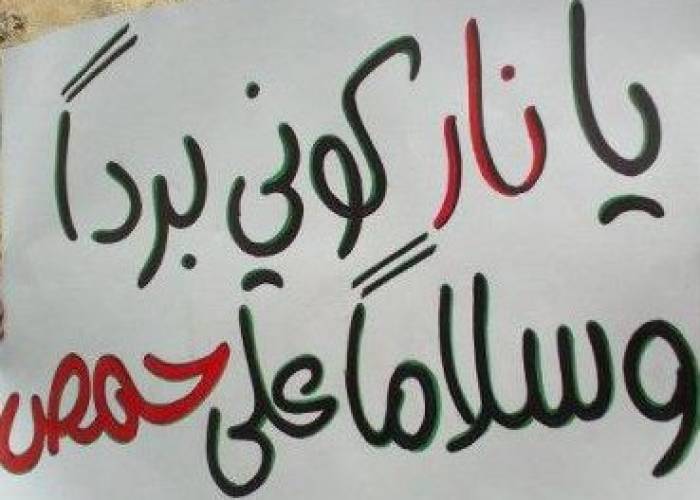 يا نار كوني برداً
وسلاماً على حمص